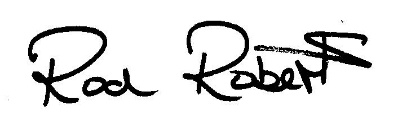 Rod Roberts